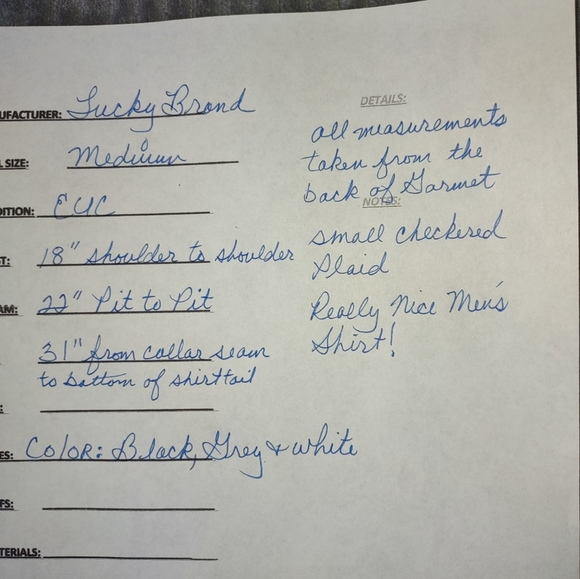 UFACTURER: Lucky Brand
L SIZE: Medium
DITION: EUC
T: 18" shoulder to shoulder
AM: 22" Pit to Pit
31" from collar seam
to bottom of shirttail
:
ES: Color: Black, Grey & white
FS:
TERIALS:
DETAILS:
all measurements
taken from the
back of Garmet
NOTES:
small checkered
Plaid
Really Nice Men's
Shirt!